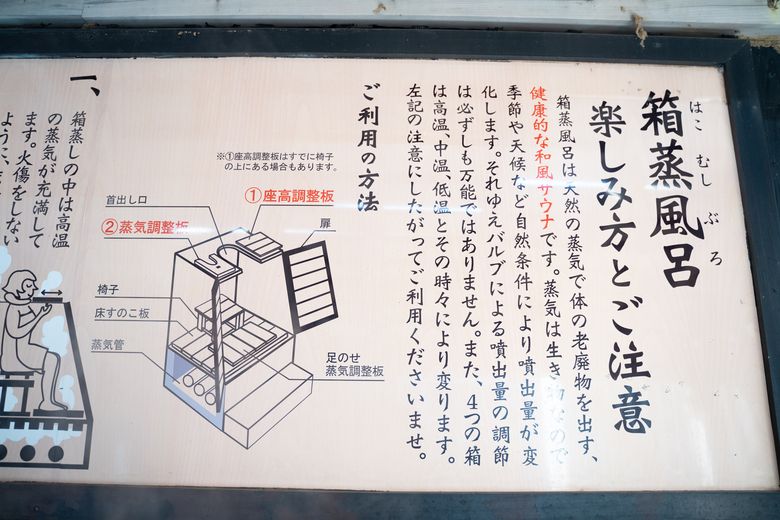 箱蒸風呂
はこ むし ぶろ
楽しみ方とご注意
箱蒸風呂は天然の蒸気で体の老廃物を出す、
健康的な和風サウナです。蒸気は生き物なので
季節や天候など自然条件により噴出量が変
化します。それゆえバルブによる噴出量の調節
は必ずしも万能ではありません。また、4つの箱
は高温、中温、低温とその時々により変ります。
左記の注意にしたがってご利用くださいませ。
ご利用の方法
※①座高調整板はすでに椅子
の上にある場合もあります。
①座高調整板
首出し口
②蒸気調整板
扉
椅子
床すのこ板
蒸気管
足のせ
蒸気調整板
一、
箱蒸しの中は高温
の蒸気が充満して
ます。火傷をしない